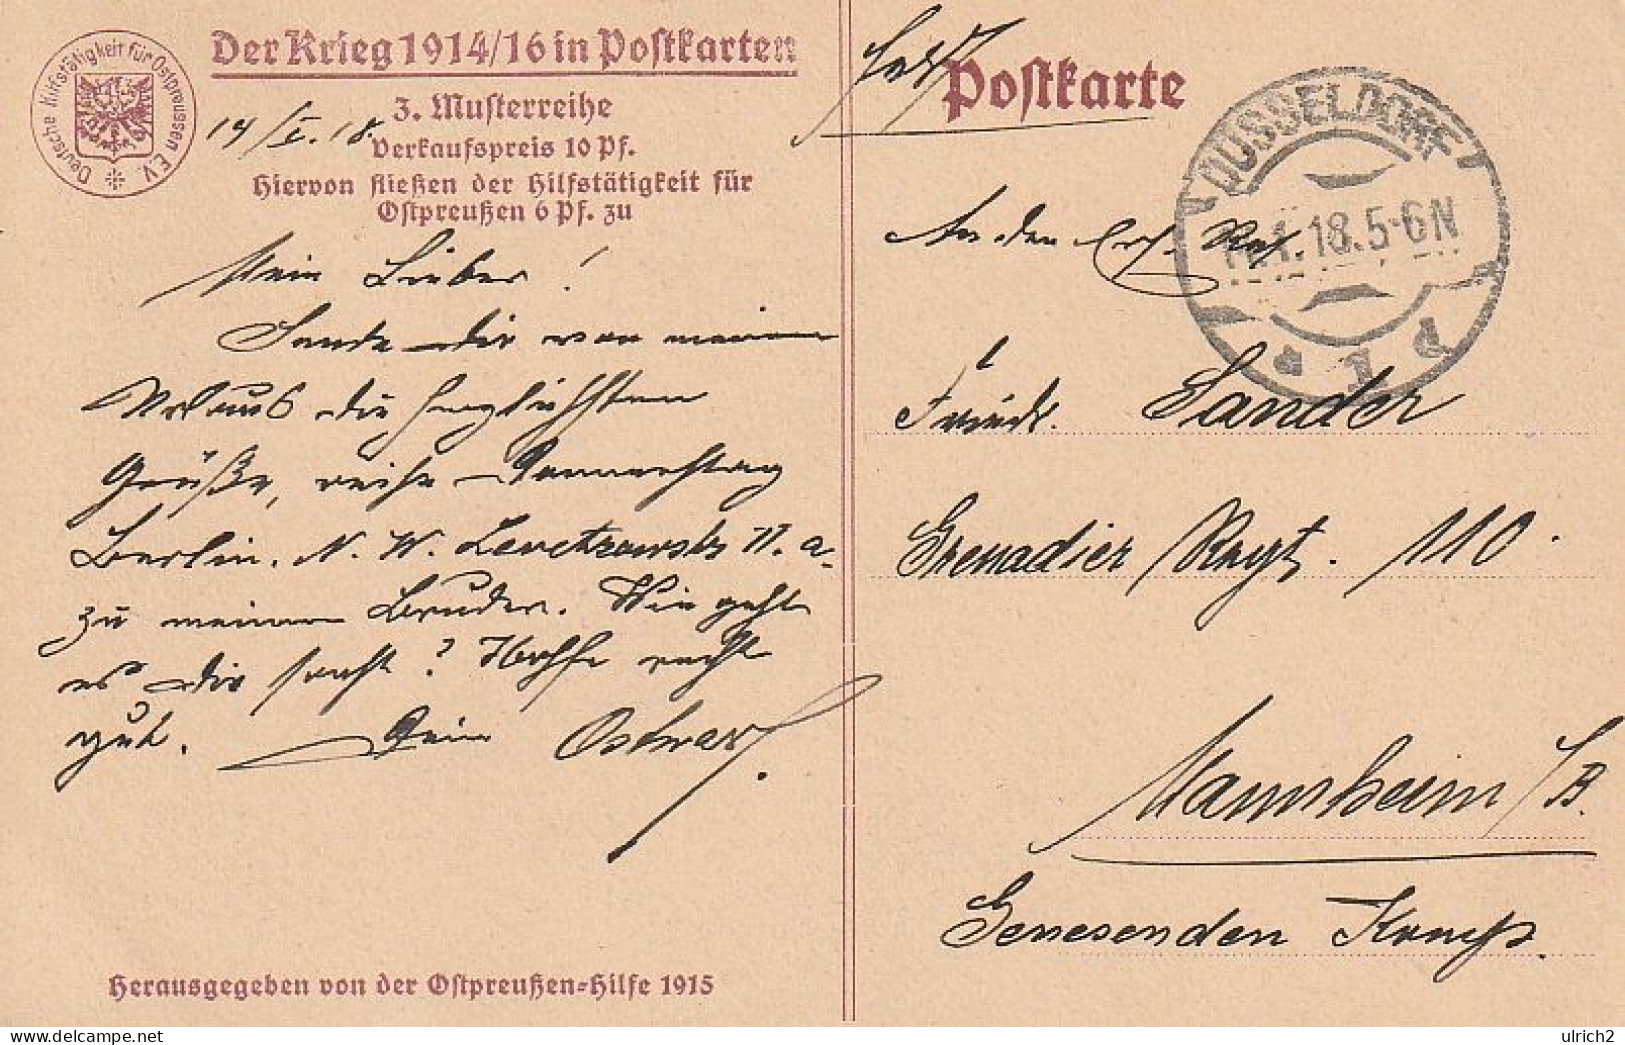 Der Krieg 1914/16 in Postkarten
Deutsche Hilfstätigkeit für Ostpreussen E.V.
3. Musterreihe
14/I.18.
Verkaufspreis 10 Pf.
Hiervon fließen der Hilfstätigkeit für
Ostpreußen 6 Pf. zu
Mein Lieber!
Sende dir von meinem
Urlaub die herzlichsten
Grüße, reise Donnerstag
Berlin. N. W. Levetzowstr 11. a.
zu meinem Bruder. Wie geht
es dir sonst? Hoffe recht
gut. Dein
Herausgegeben von der Ostpreußen-Hilfe 1915
Postkarte
DÜSSELDORF
1.18.5-6N
1 d
An den Ers. Res.
Friedr. Sander
Grenadier Regt. 110.
Mannheim /B.
Genesenden Komp.
ulrich2